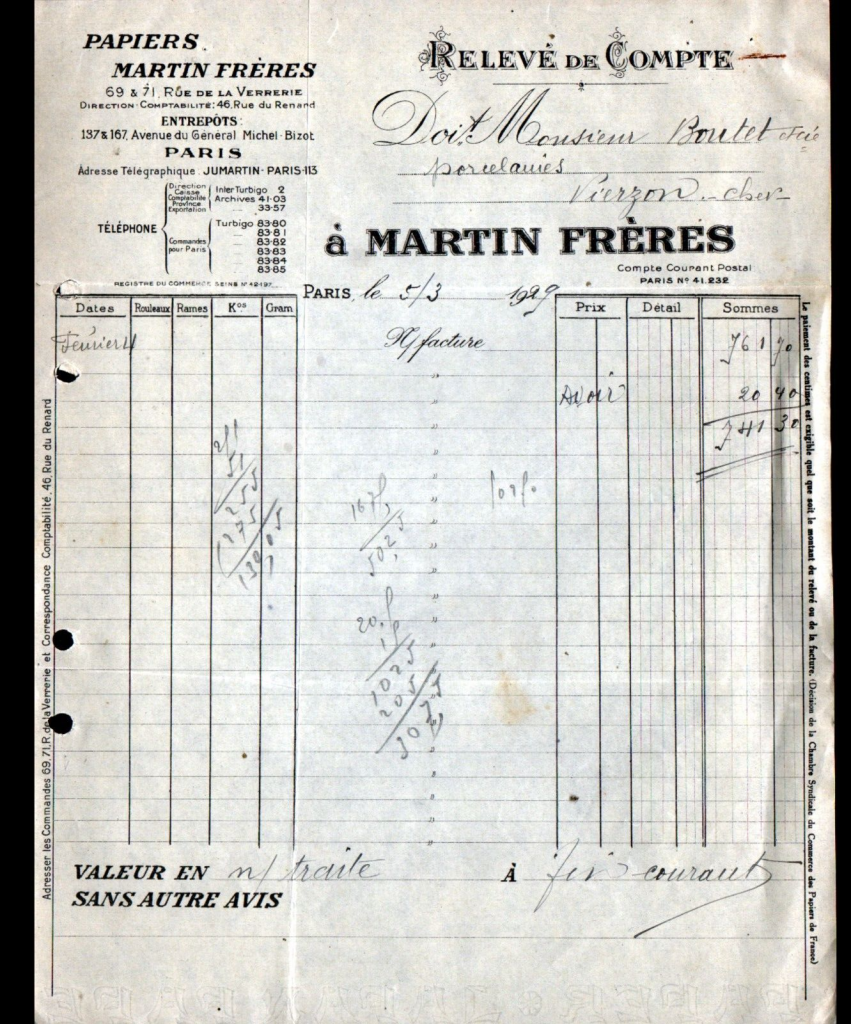 PAPIERS
MARTIN FRÈRES
69 & 71, RUE DE LA VERRERIE
DIRECTION-COMPTABILITÉ: 46, Rue du Renard
ENTREPÔTS:
137 & 167, Avenue du Général Michel-Bizot
PARIS
Adresse Télégraphique: JUMARTIN-PARIS-113
TÉLÉPHONE
Direction
Caisse
Comptabilité
Province
Exportation
Inter Turbigo 2
Archives 41-03
— 33-57
Commandes
pour Paris
Turbigo 83-80
— 83-81
— 83-82
— 83-83
— 83-84
— 83-85
REGISTRE DU COMMERCE SEINE Nº 42-197
RELEVÉ DE COMPTE
Doit Monsieur Boutet & Cie
porcelaines
Vierzon - cher
à MARTIN FRÈRES
Compte Courant Postal
PARIS Nº 41.232
PARIS, le 5/3 1929
Dates Rouleaux Rames Kos Gram Prix Détail Sommes
Février 4 N/ facture 761 70
Avoir 20 40
741 30
211
51
255
167
5025
20
1025
205
3075
VALEUR EN n/ traite À fin courant
SANS AUTRE AVIS
Adresser les Commandes 69, 71, R. de la Verrerie et Correspondance Comptabilité, 46, Rue du Renard
Le paiement des centimes est exigible quel que soit le montant du relevé ou de la facture. (Décision de la Chambre Syndicale du Commerce des Papiers de France)